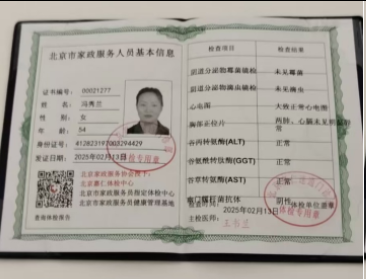 北京市家政服务人员基本信息
证书编号: 00021277
姓 名: 冯秀兰
性 别: 女
年 龄: 54
身份证号: 412823197003294429
发证日期: 2025年02月13日
体检专用章
北京家政服务协会授予:
北京市家政服务员指定体检中心
北京市家政服务员健康管理基地
查询体检报告
检查项目 检查结果
阴道分泌物霉菌镜检 未见霉菌
阴道分泌物滴虫镜检 未见滴虫
心电图 大致正常心电图
胸部正位片 两肺、心膈未见
常
谷丙转氨酶(ALT) 正常
谷氨酰转肽酶(GGT) 正常
谷草转氨酶(AST) 正常
阴性
2025年02月13日
体检单位盖章
体检专用章
主检医师: